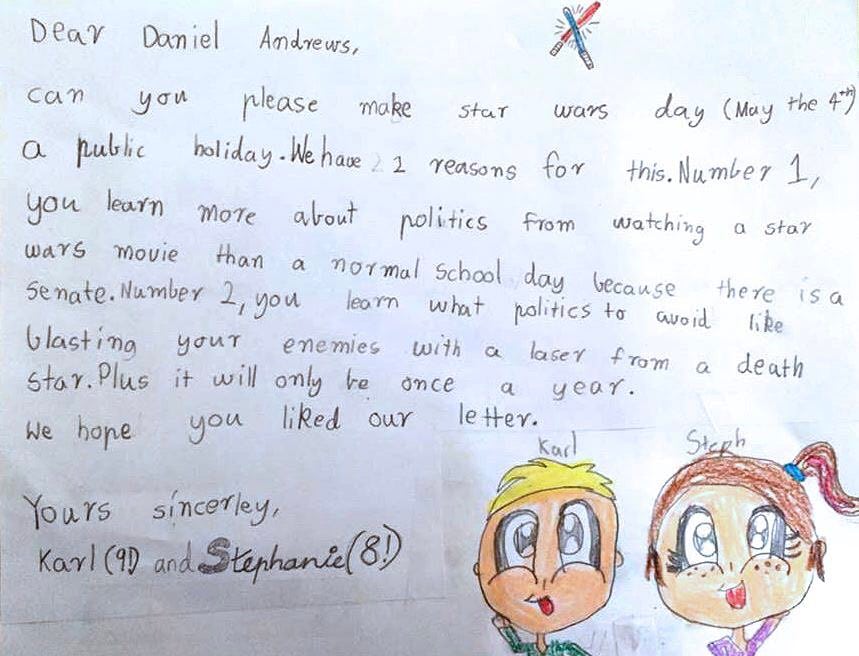 Dear Daniel Andrews,
can you please make star wars day (May the 4th)
a public holiday. We have 2 reasons for this. Number 1,
you learn more about politics from watching a star
wars movie than a normal school day because there is a
Senate. Number 2, you learn what politics to avoid like
blasting your enemies with a laser from a death
star. Plus it will only be once a year.
We hope you liked our letter.
Karl Steph
Yours sincerley,
Karl (9!) and Stephanie (8!)